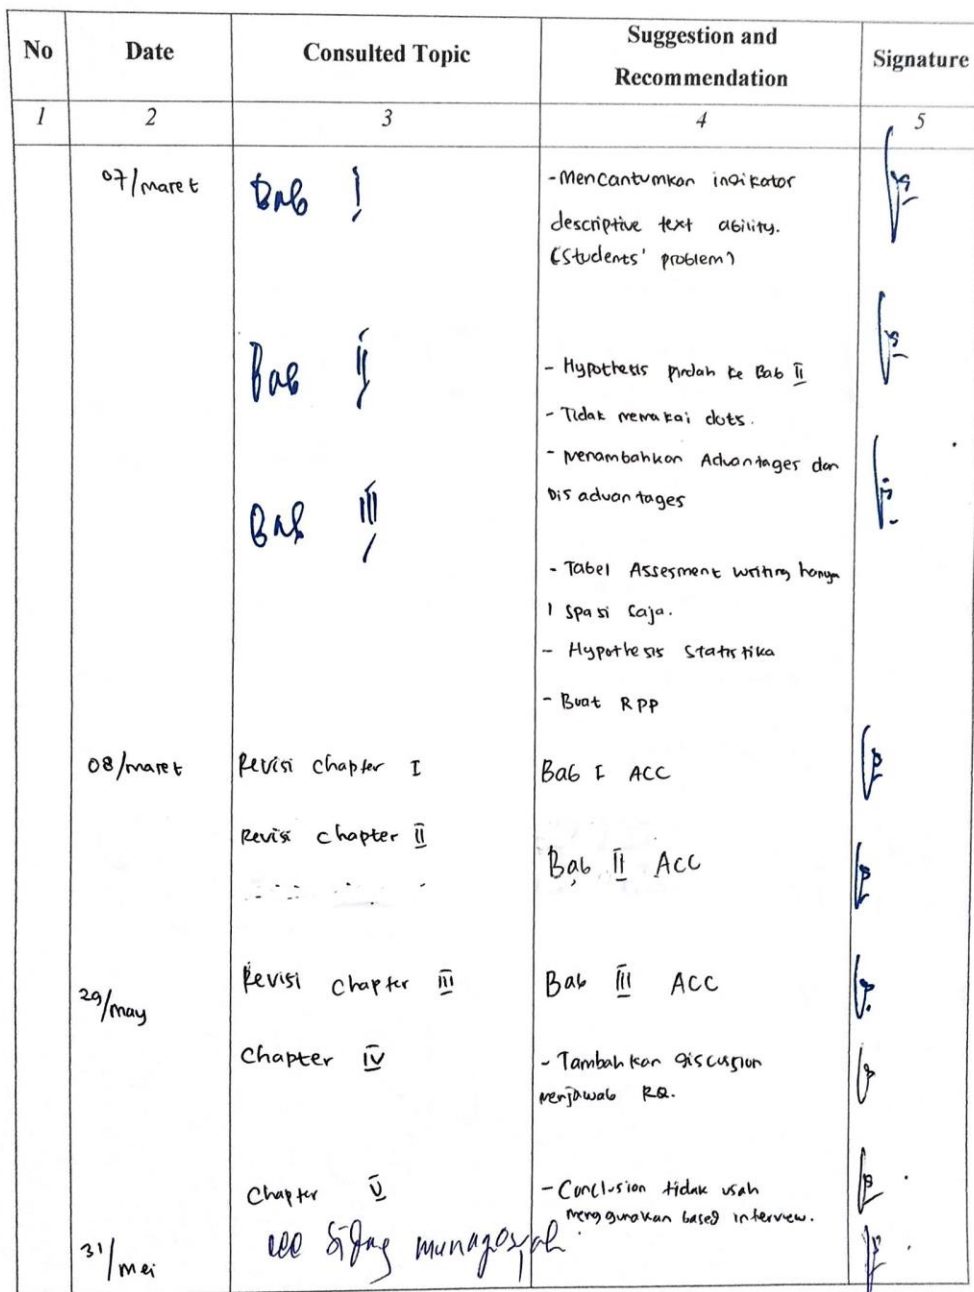 No Date Consulted Topic Suggestion and Recommendation Signature
1 2 3 4 5
07/maret Bab I - Mencantumkan indikator
descriptive text ability.
(Students' problem)
Bab II - Hypothesis pindah ke Bab II
- Tidak memakai dots.
- menambahkan Advantages dan
Dis advantages
Bab III
- Tabel Assesment writing hanya
1 spasi saja.
- Hypothesis Statistika
- Buat RPP
08/maret Revisi chapter I Bab I ACC
Revisi chapter II Bab II ACC
29/may Revisi chapter III Bab III ACC
Chapter IV - Tambahkan discussion
menjawab RQ.
Chapter V - Conclusion tidak usah
menggunakan based interview.
31/mei acc Sidang munaqosyah